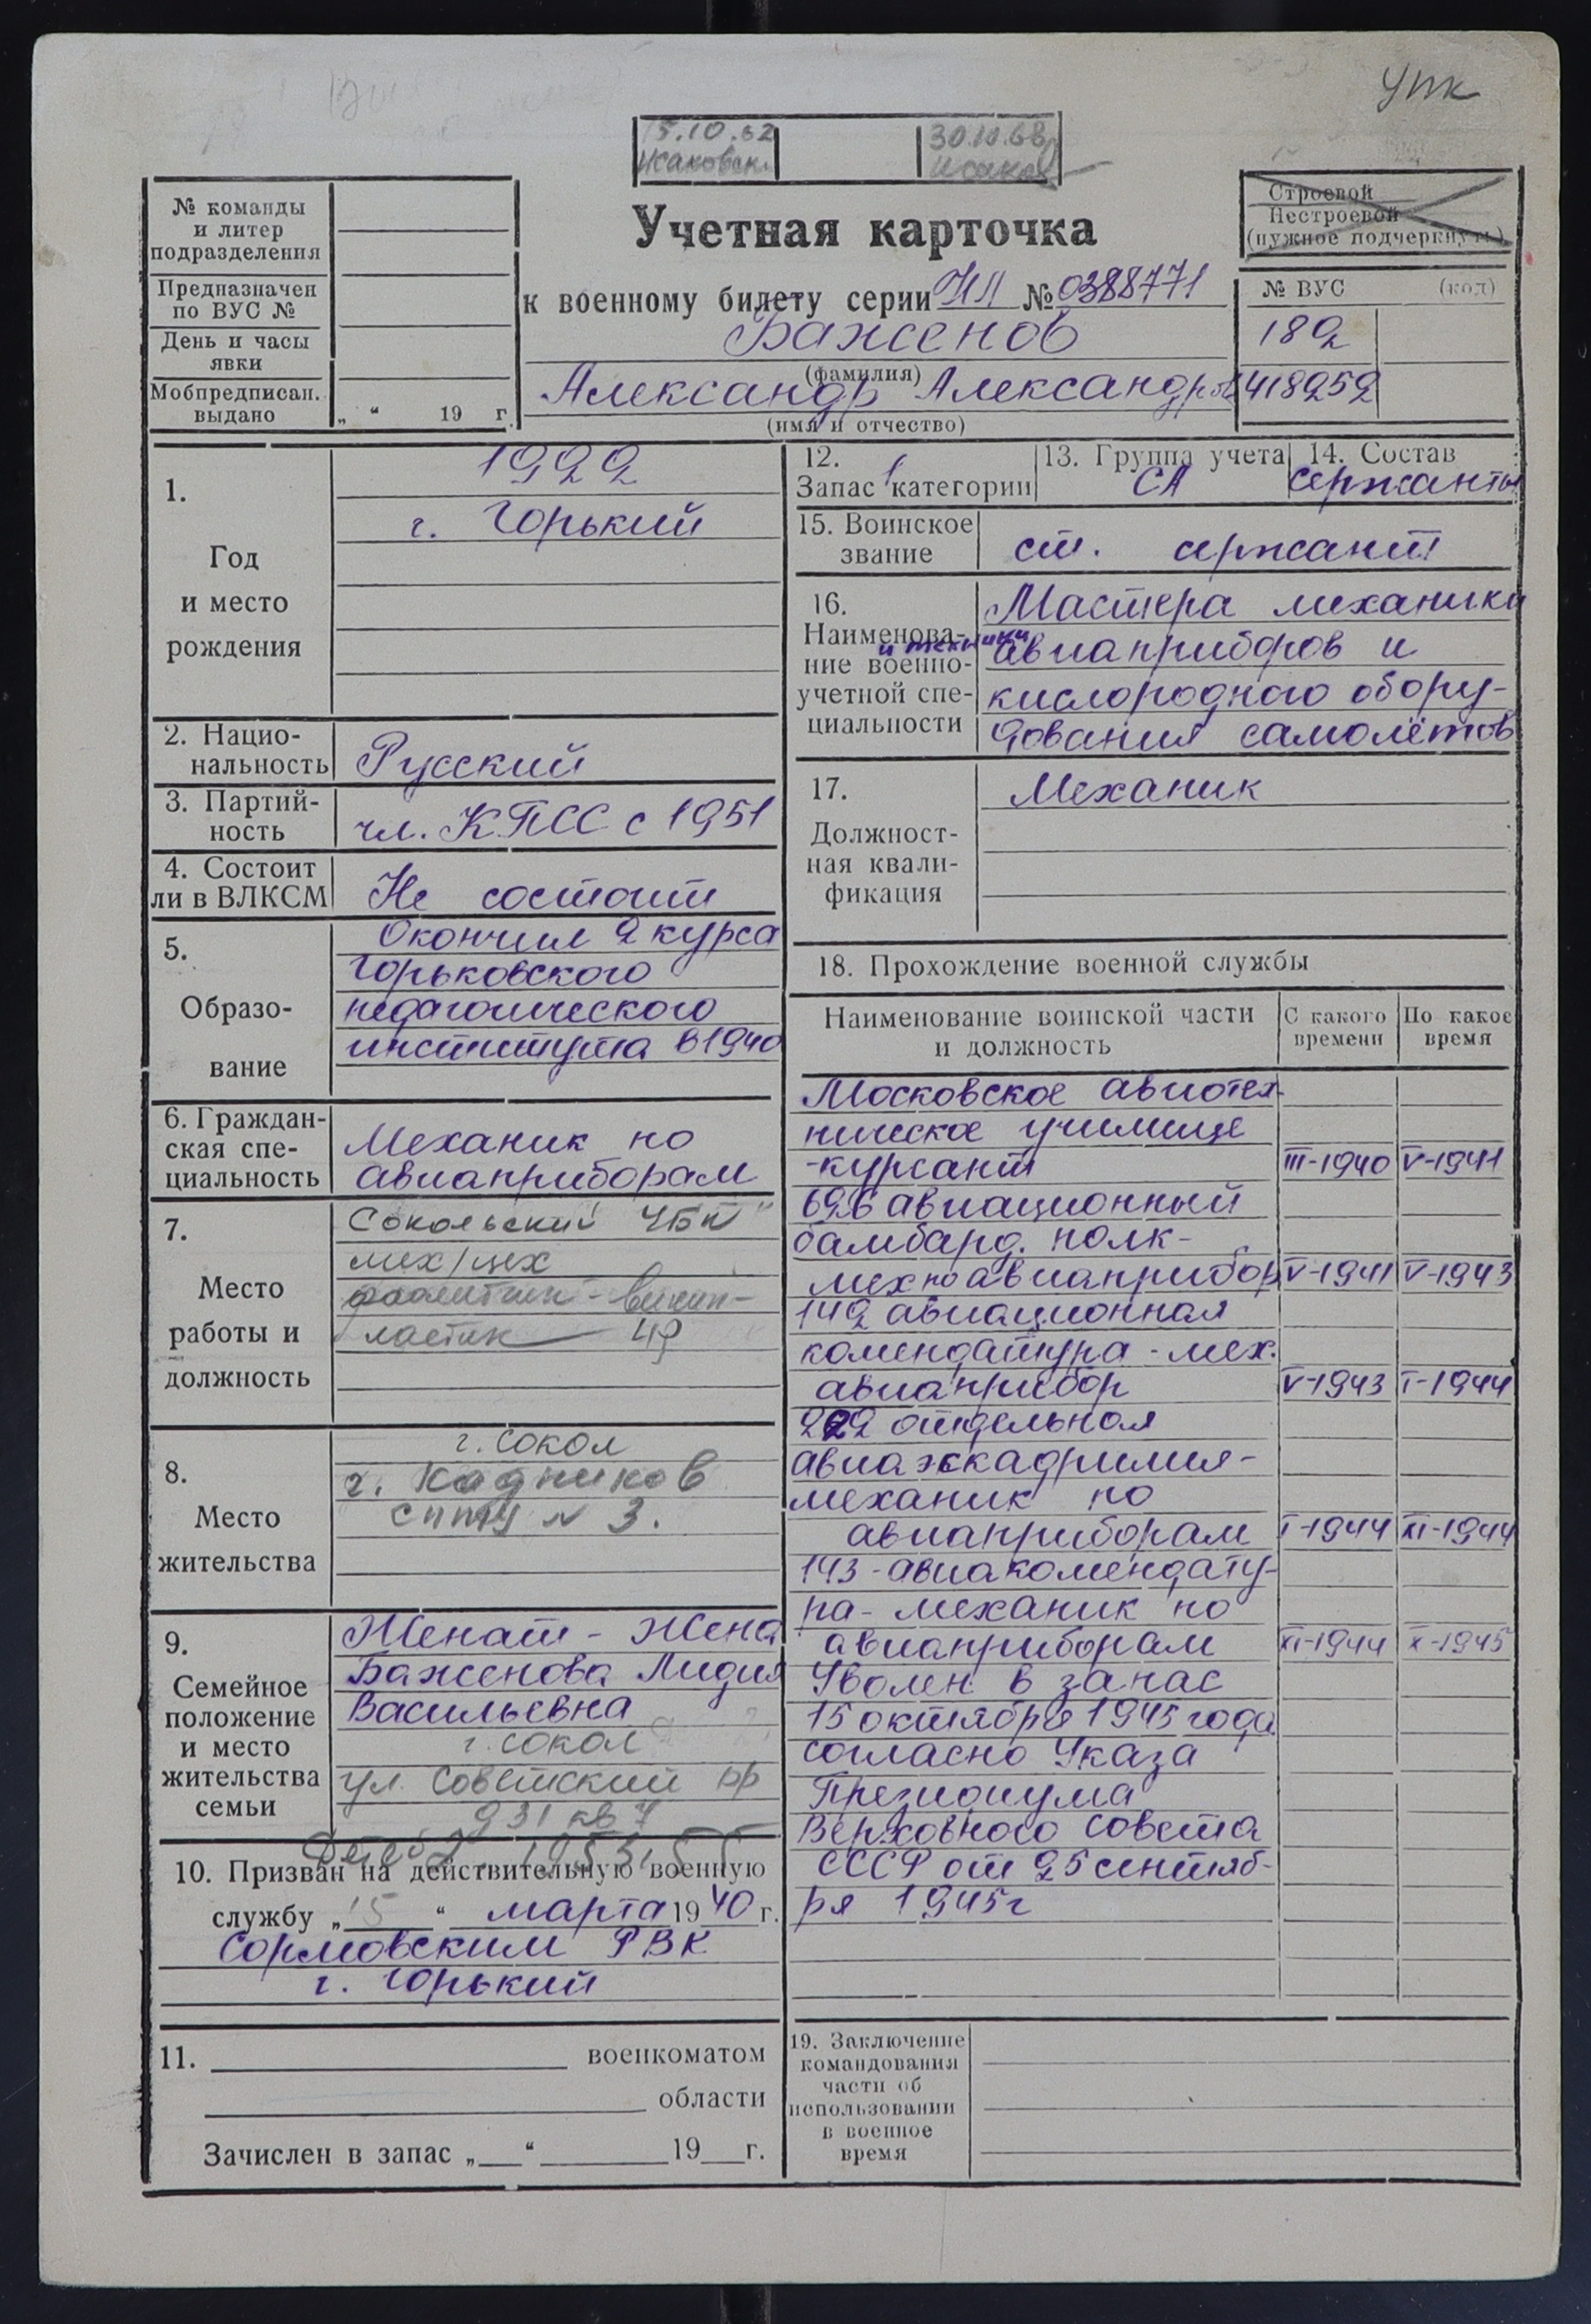 упк
15.10.62
30.10.68
№ команды
и литер
подразделения
Предназначен
по ВУС №
День и часы
явки
Мобпредписан.
выдано
„ “ 19 г.
Учетная карточка
к военному билету серии НЛ № 0388771
Баженов
(фамилия)
Александр Александров
(имя и отчество)
Строевой
Нестроевой
(нужное подчеркнуть)
№ ВУС (код)
182
418252
1.
Год
и место
рождения
1922
г. Горький
2. Нацио-
нальность
Русский
3. Партий-
ность
чл. КПСС с 1951
4. Состоит
ли в ВЛКСМ
Не состоит
5.
Образо-
вание
Окончил 2 курса
Горьковского
педагогического
института в 1940
6. Граждан-
ская спе-
циальность
Механик по
авиаприборам
7.
Место
работы и
должность
Сокольский ЦБК
мех/цех
8.
Место
жительства
г. Сокол
г. Кадников
СПТУ № 3.
9.
Семейное
положение
и место
жительства
семьи
Женат - жена
Баженова Лидия
Васильевна
г. Сокол
ул. Советский пр
д 31 кв 7
10. Призван на действительную военную
службу „15“ марта 1940 г.
Сормовским РВК
г. Горький
11. военкоматом
области
Зачислен в запас „ “ 19 г.
12.
Запас 1 категории
13. Группа учета
СА
14. Состав
сержанты
15. Воинское
звание
ст. сержант
16.
Наименова-
ние военно-
учетной спе-
циальности
Мастера механики
и техники
авиаприборов и
кислородного обору-
дования самолётов
17.
Должност-
ная квали-
фикация
Механик
18. Прохождение военной службы
Наименование воинской части
и должность
С какого
времени
По какое
время
Московское авиотех-
ническое училище
-курсант III-1940 V-1941
696 авиационный
бамбард. полк-
мех по авиаприбор V-1941 V-1943
142 авиационная
комендатура - мех.
авиаприбор V-1943 I-1944
222 отдельная
авиаэскадрилия-
механик по
авиаприборам I-1944 XI-1944
143 - авиакомендату-
ра - механик по
авиаприборам XI-1944 X-1945
Уволен в запас
15 октября 1945 года
согласно Указа
Президиума
Верховного Совета
СССР от 25 сентяб-
ря 1945 г
19. Заключение
командования
части об
использовании
в военное
время